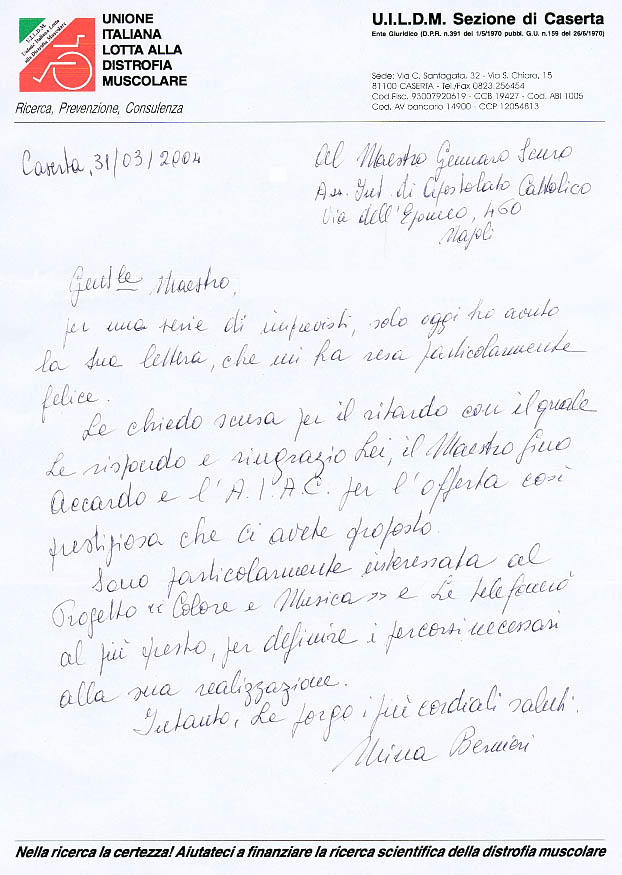 U.I.L.D.M.
Unione Italiana Lotta
alla Distrofia Muscolare
UNIONE
ITALIANA
LOTTA ALLA
DISTROFIA
MUSCOLARE
Ricerca, Prevenzione, Consulenza
U.I.L.D.M. Sezione di Caserta
Ente Giuridico (D.P.R. n.391 del 1/5/1970 pubbl. G.U. n.159 del 26/6/1970)
Sede: Via C. Santagata, 32 - Via S. Chiara, 15
81100 CASERTA - Tel./Fax 0823.256454
Cod Fisc. 93007920619 - CCB 19427 - Cod. ABI 1005
Cod. AV bancario 14900 - CCP 12054813
Caserta, 31/03/2004
Al Maestro Gennaro Scuro
Ass. Int. di Apostolato Cattolico
Via dell'Epomeo, 460
Napoli
Gent.le Maestro,
per una serie di imprevisti, solo oggi ho avuto
la Sua lettera, che mi ha resa particolarmente
felice.
Le chiedo scusa per il ritardo con il quale
Le rispondo e ringrazio Lei, il Maestro Gino
Accardo e l'A.I.A.C. per l'offerta così
prestigiosa che ci avete proposto.
Sono particolarmente interessata al
Progetto "Colore e Musica" e Le telefonerò
al più presto, per definire i percorsi necessari
alla sua realizzazione.
Intanto, Le porgo i più cordiali saluti.
Mina Bernieri
Nella ricerca la certezza! Aiutateci a finanziare la ricerca scientifica della distrofia muscolare